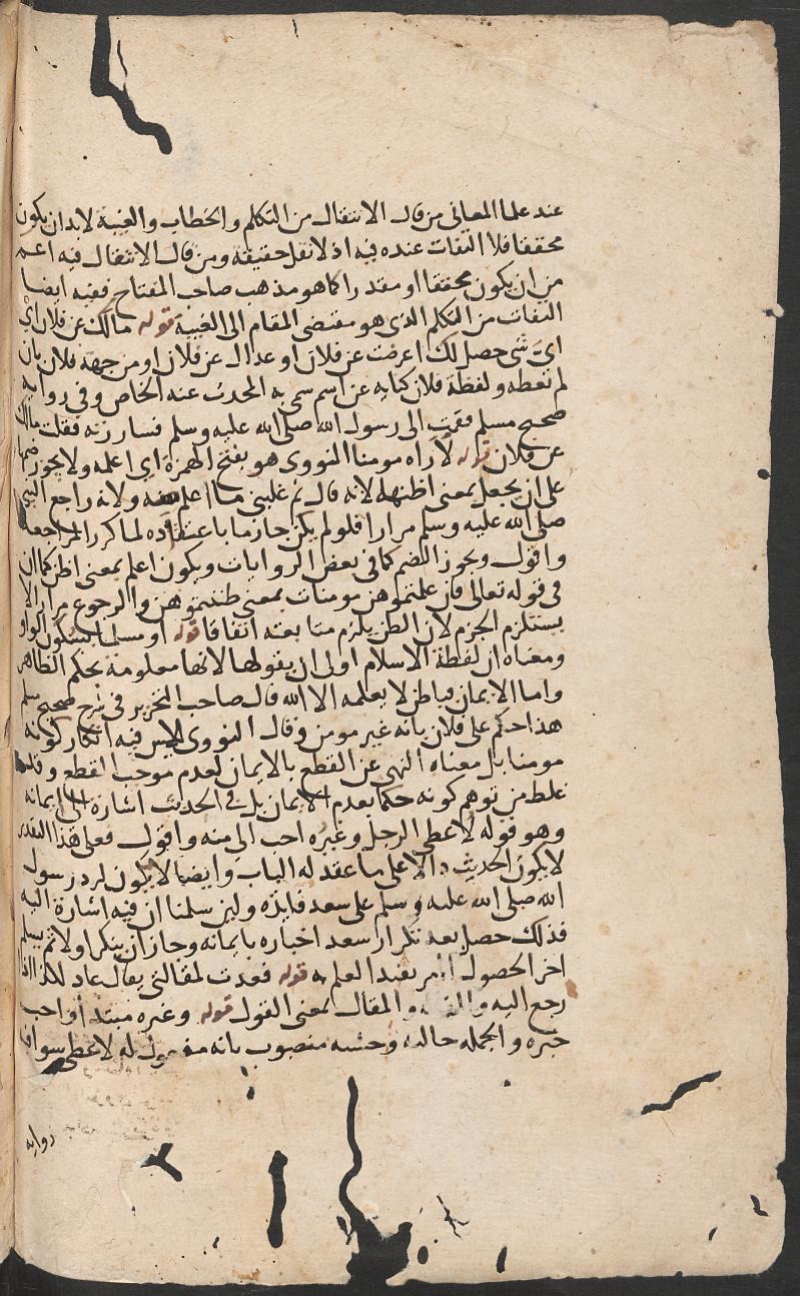 عند علما المعاني من قال الانتقال من التكلم والخطاب والغيبة لابد ان يكون
محققا فلا التفات عنده فيه اذ لا نقل حقيقة ومن قال الانتقال فيه اعم
من ان يكون محققا او مقدرا كما هو مذهب صاحب المفتاح ففيه ايضا
التفات من التكلم الذى هو مقتضى المقام الى الغيبة قوله مالك عن فلان اي
اى شى حصل لك اعرضت عن فلان او عدال عن فلان او من جهة فلان بان
لم تعطه ولفظة فلان كناية عن اسم سمى به المحدث عنه الخاص وفي رواية
صحيح مسلم فقمت الى رسول الله صلى الله عليه وسلم فساررته فقلت مالك
عن فلان قوله لاراه مومنا النووى هو بفتح الهمزة اى اعلمه ولا يجوز ضمها
على ان يجعل بمعنى اظنه لانه قال ثم غلبنى ما اعلم منه ولانه راجع النبى
صلى الله عليه وسلم مرارا فلو لم يكن جازما باعتقاده لما كرر المراجعة
واقول ويجوز الضم كما فى بعض الروايات ويكون اعلم بمعنى اظن كما ان
فى قوله تعالى فان علمتموهن مومنات بمعنى ظننتموهن والرجوع مرارا لا
يستلزم الجزم لان الظن يلزم متابعته اتفاقا قوله او مسلما بسكون الواو
ومعناه ان لفظة الاسلام اولى ان يقولها لانها معلومة بحكم الظاهر
واما الايمان فباطن لا يعلمه الا الله قال صاحب التحرير فى شرح صحيح مسلم
هذا حكم على فلان بانه غير مومن وقال النووى ليس فيه انكار كونه
مومنا بل معناه النهى عن القطع بالايمان لعدم موجب القطع وقد
غلط من توهم كونه حكما بعدم الايمان بل فى الحديث اشارة الى ايمانه
وهو قوله لاعطى الرجل وغيره احب الي منه واقول فعلى هذا التقدير
لا يكون الحديث دالا على ما عقد له الباب وايضا لا يكون لرد رسول
الله صلى الله عليه وسلم على سعد فايدة ولين سلمنا ان فيه اشارة اليه
فذلك حصل بعد تكرار سعد اخباره بايمانه وجاز ان ينكر اولا ثم يسلم
اخرا لحصول امر يفيد العلم به قوله فعدت لمقالتى يقال عاد لكذا اذا
رجع اليه والمقالة والمقال بمعنى القول قوله وغيره مبتدا واحب
خبره والجملة حالية وخشية منصوب بانه مفعول له لاعطى سوا فى
رواية